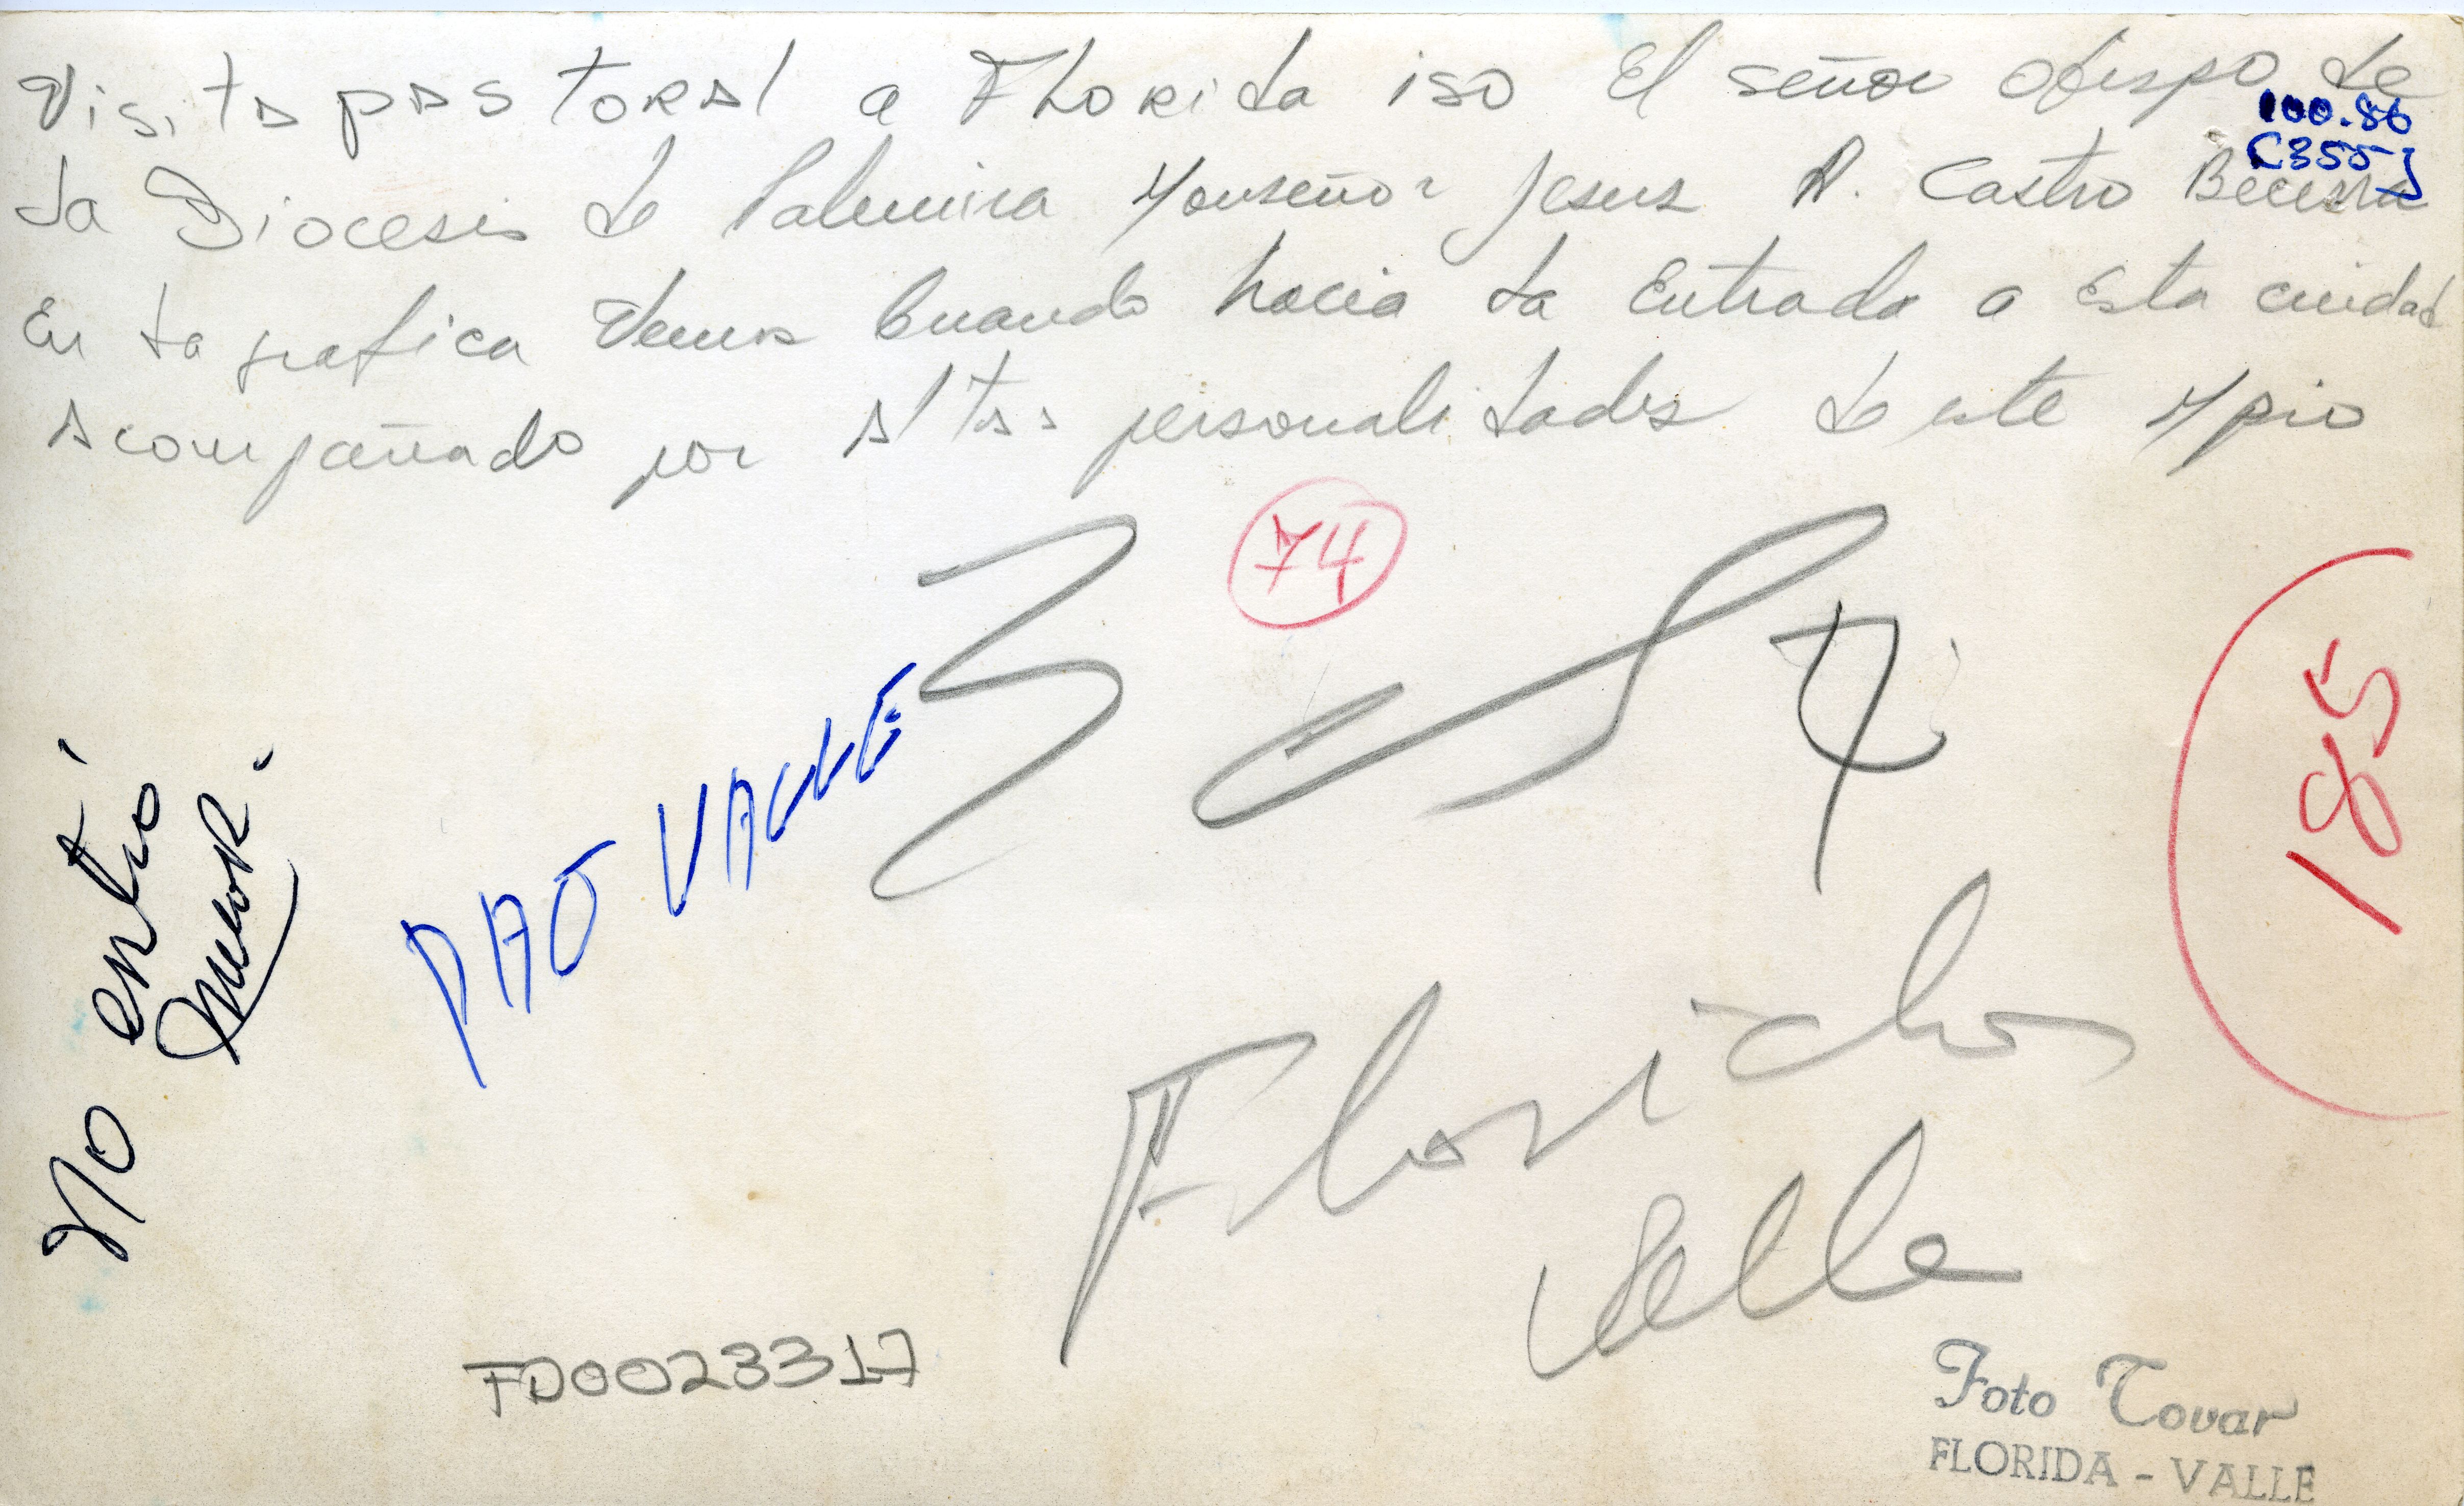 Visita pastoral a Florida iso El señor obispo de
100.86
C355j
La Diocesis de Palmira Monseñor Jesus A. Castro Becerra
En la grafica Vemos Cuando hacia la Entrada a Esta ciudad
Acompañado por altas personalidades de este Mpio
74
185
PAO VALLE
No entró
Florida
Valle
FD0023317
Foto Tovar
FLORIDA - VALLE